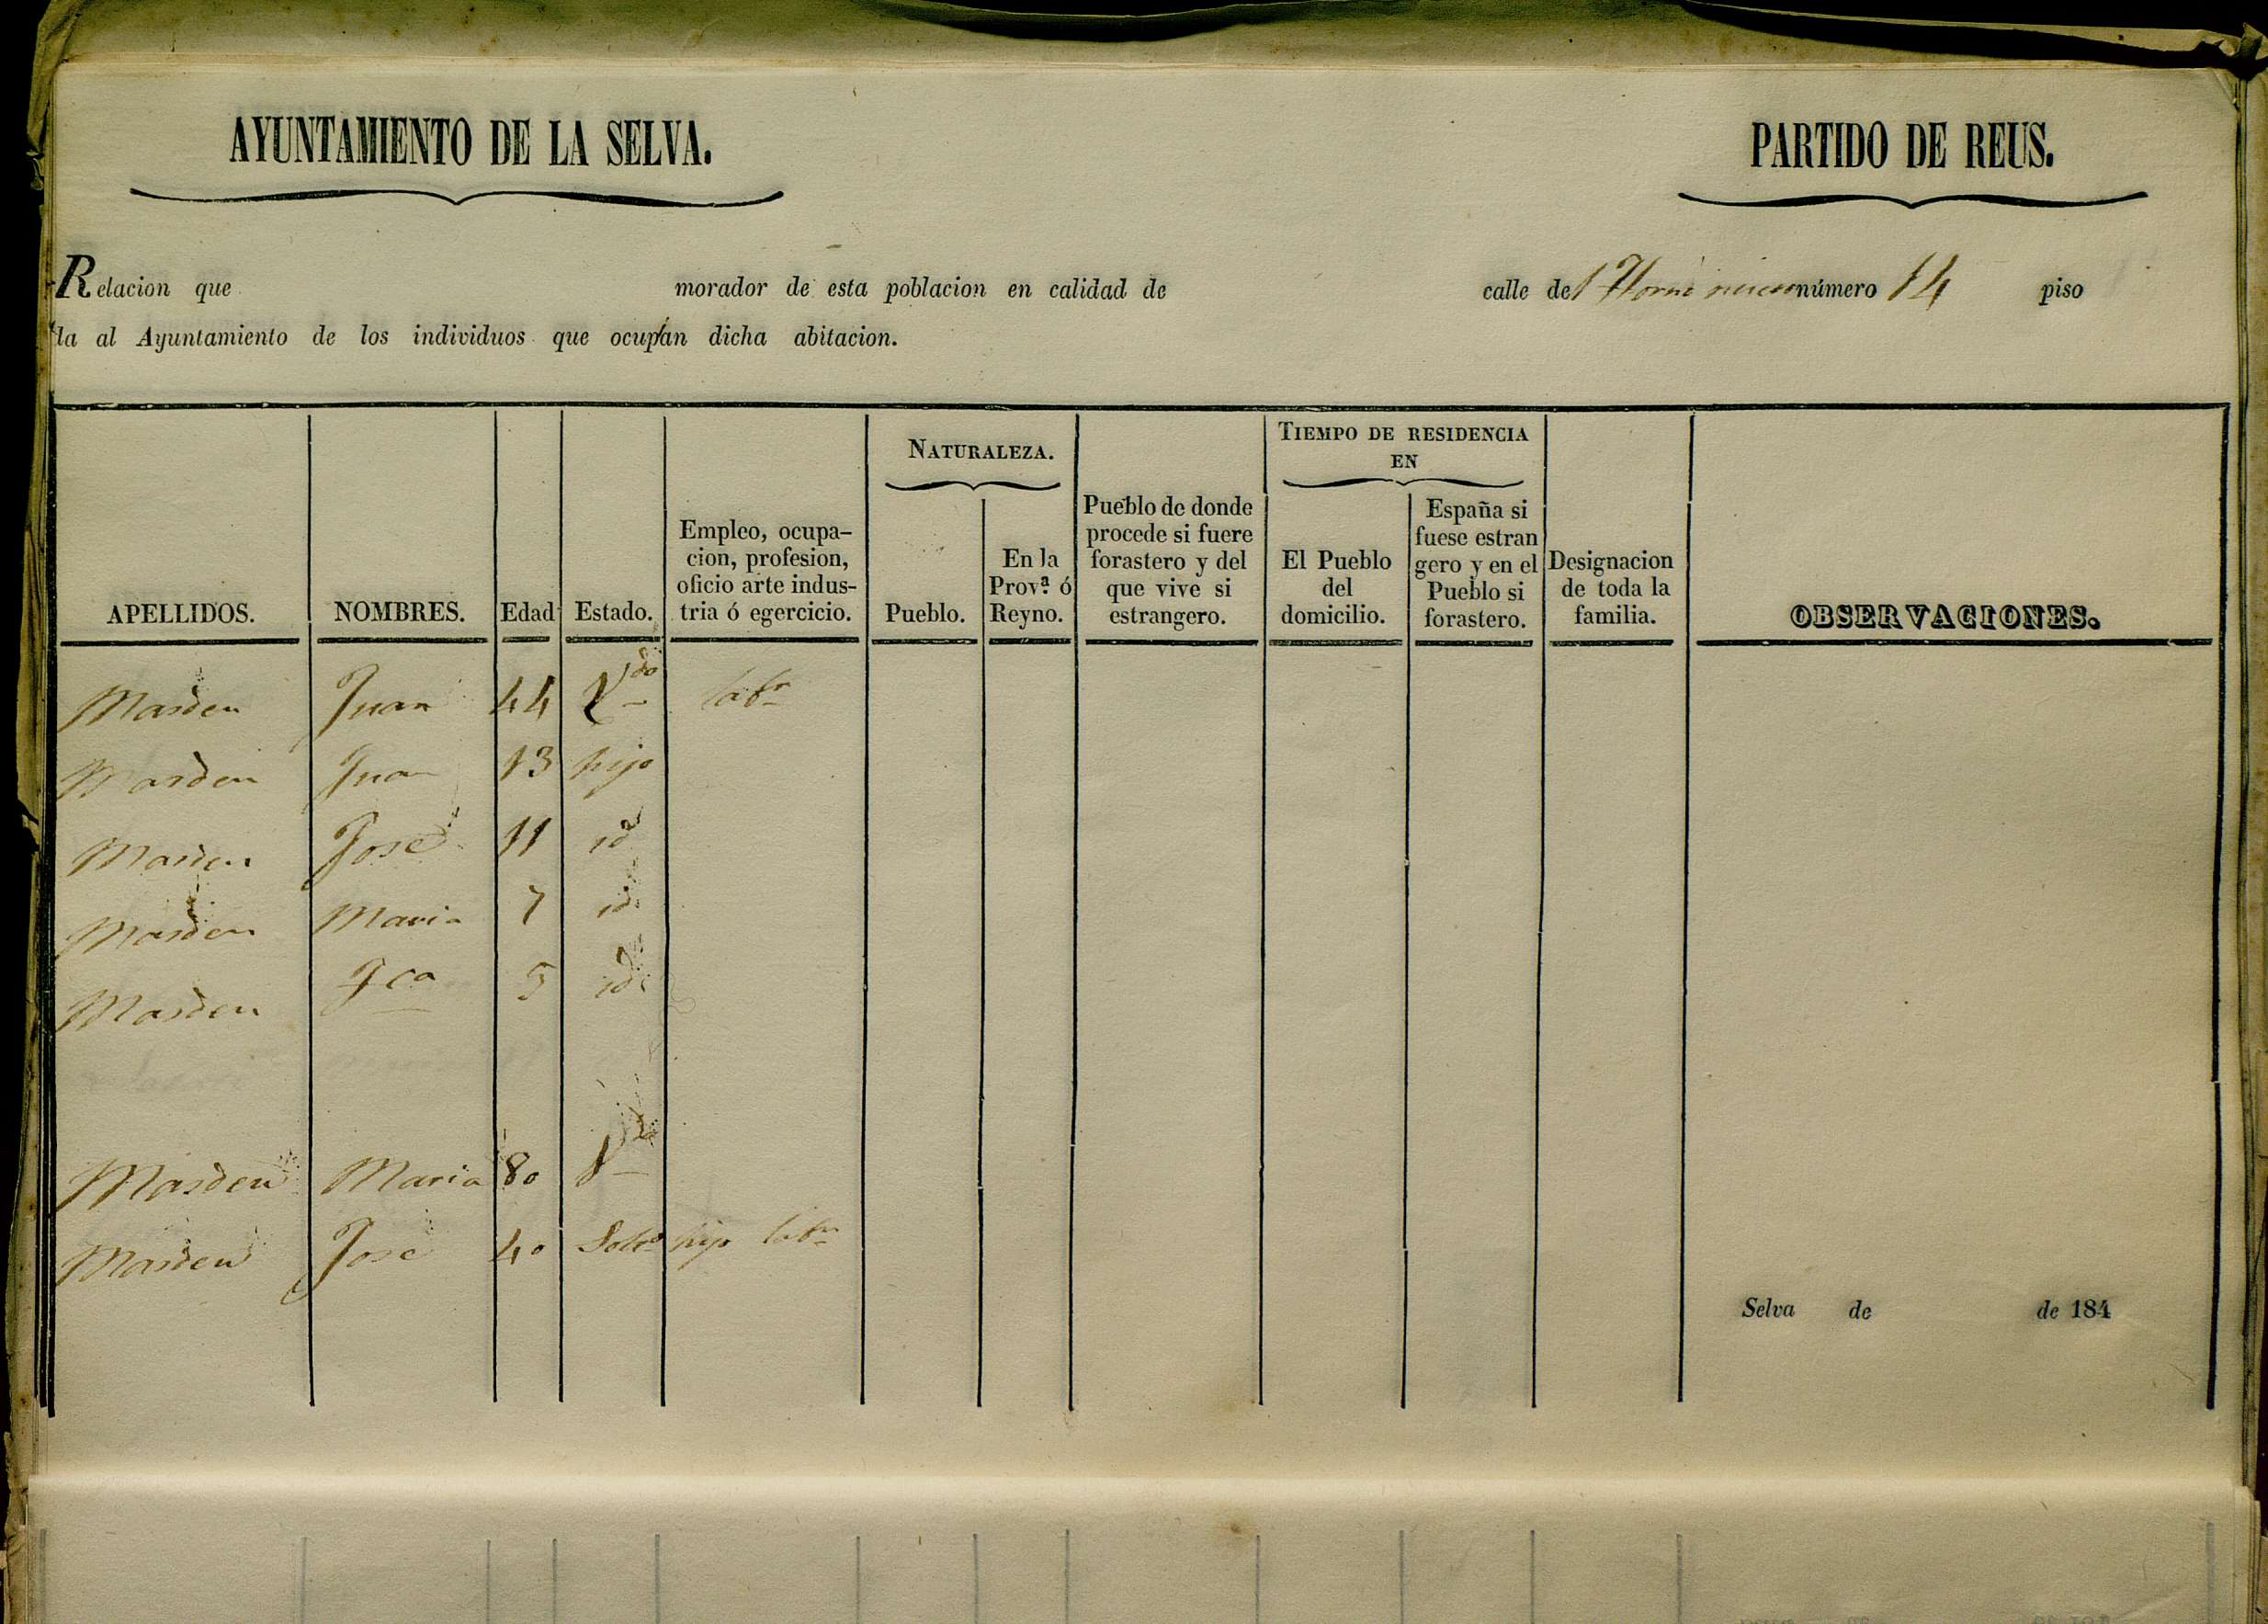 AYUNTAMIENTO DE LA SELVA. PARTIDO DE REUS.
Relacion que morador de esta poblacion en calidad de calle del Horno nuevo número 14 piso
da al Ayuntamiento de los individuos que ocupan dicha abitacion.
NATURALEZA. TIEMPO DE RESIDENCIA
EN
APELLIDOS. NOMBRES. Edad Estado. Empleo, ocupa-
cion, profesion,
oficio arte indus-
tria ó egercicio. Pueblo. En la
Prov.ª ó
Reyno. Pueblo de donde
procede si fuere
forastero y del
que vive si
estrangero. El Pueblo
del
domicilio. España si
fuese estran
gero y en el
Pueblo si
forastero. Designacion
de toda la
familia. OBSERVACIONES.
Masdeu Juan 44 Vdo labr
Masdeu Juan 13 hijo
Masdeu Jose 11 id
Masdeu Maria 7 id.
Masdeu Fca 5 id.
Masdeu Maria 80 Vda
Masdeu Jose 40 Solto hijo labr
Selva de de 184